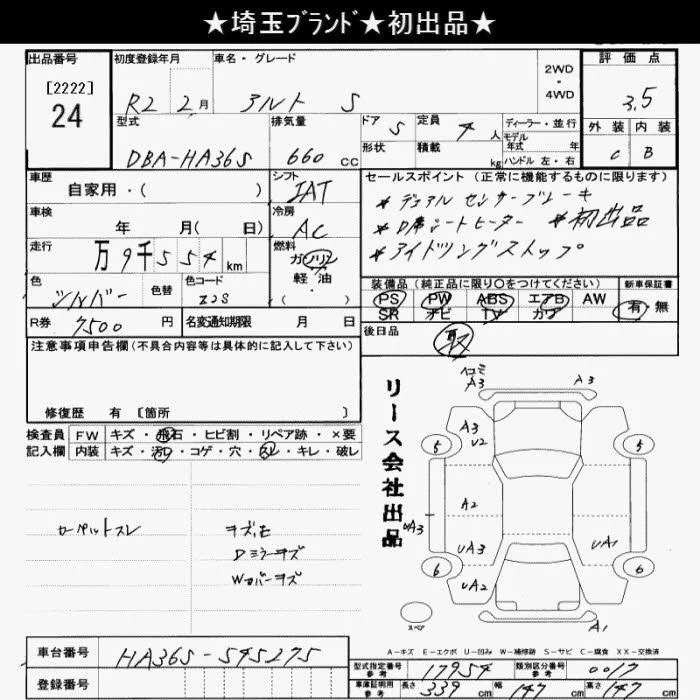 ★埼玉ﾌﾞﾗﾝﾄﾞ★初出品★
出品番号
[2222]
24
初度登録年月
R2 2月
車名・グレード
アルト S
2WD
・
4WD
評価点
3.5
型式
DBA-HA36S
排気量
660 cc
ドア 5
形状
定員 4 人
積載 kg
ディーラー・並行
モデル
年式 年
ハンドル 左・右
外装 内装
C B
車歴
自家用・( )
シフト
IAT
車検
年 月( 日)
冷房
AC
走行
万 9千554 km
燃料
ガソリン
軽油
・
( )
セールスポイント (正常に機能するものに限ります)
*デュアルセンサーブレーキ
*D席シートヒーター *初出品
*アイドリングストップ
色
シルバー
色替
色コード
Z2S
R券 7500 円
名変通知期限 月 日
装備品(純品に限り○をつけてください)
PS PW ABS エアB AW
SR ナビ TV カワ
新車保証書
有・無
後日品
取
注意事項申告欄(不具合内容等は具体的に記入して下さい)
修復歴 有 [箇所 ]
検査員
記入欄
FW キズ・飛石・ヒビ割・リペア跡・×要
内装 キズ・汚れ・コゲ・穴・スレ・キレ・破レ
カーペットスレ
キズ、E
Dミラーキズ
Wカバーキズ
リース会社出品
ヘコミ
A3
A3
A3
U2
5
5
A2
UA3
UA3
UA1
6
6
UA2
A1
スペア
A－キズ E－エクボ U－凹み W－補修跡 S－サビ C－腐食 XX－交換済
車台番号
HA36S-545275
登録番号
型式指定番号
参考
17954
類別区分番号
参考
0017
車庫証明用
参考
長さ 339 cm
幅 147 cm
高さ 147 cm